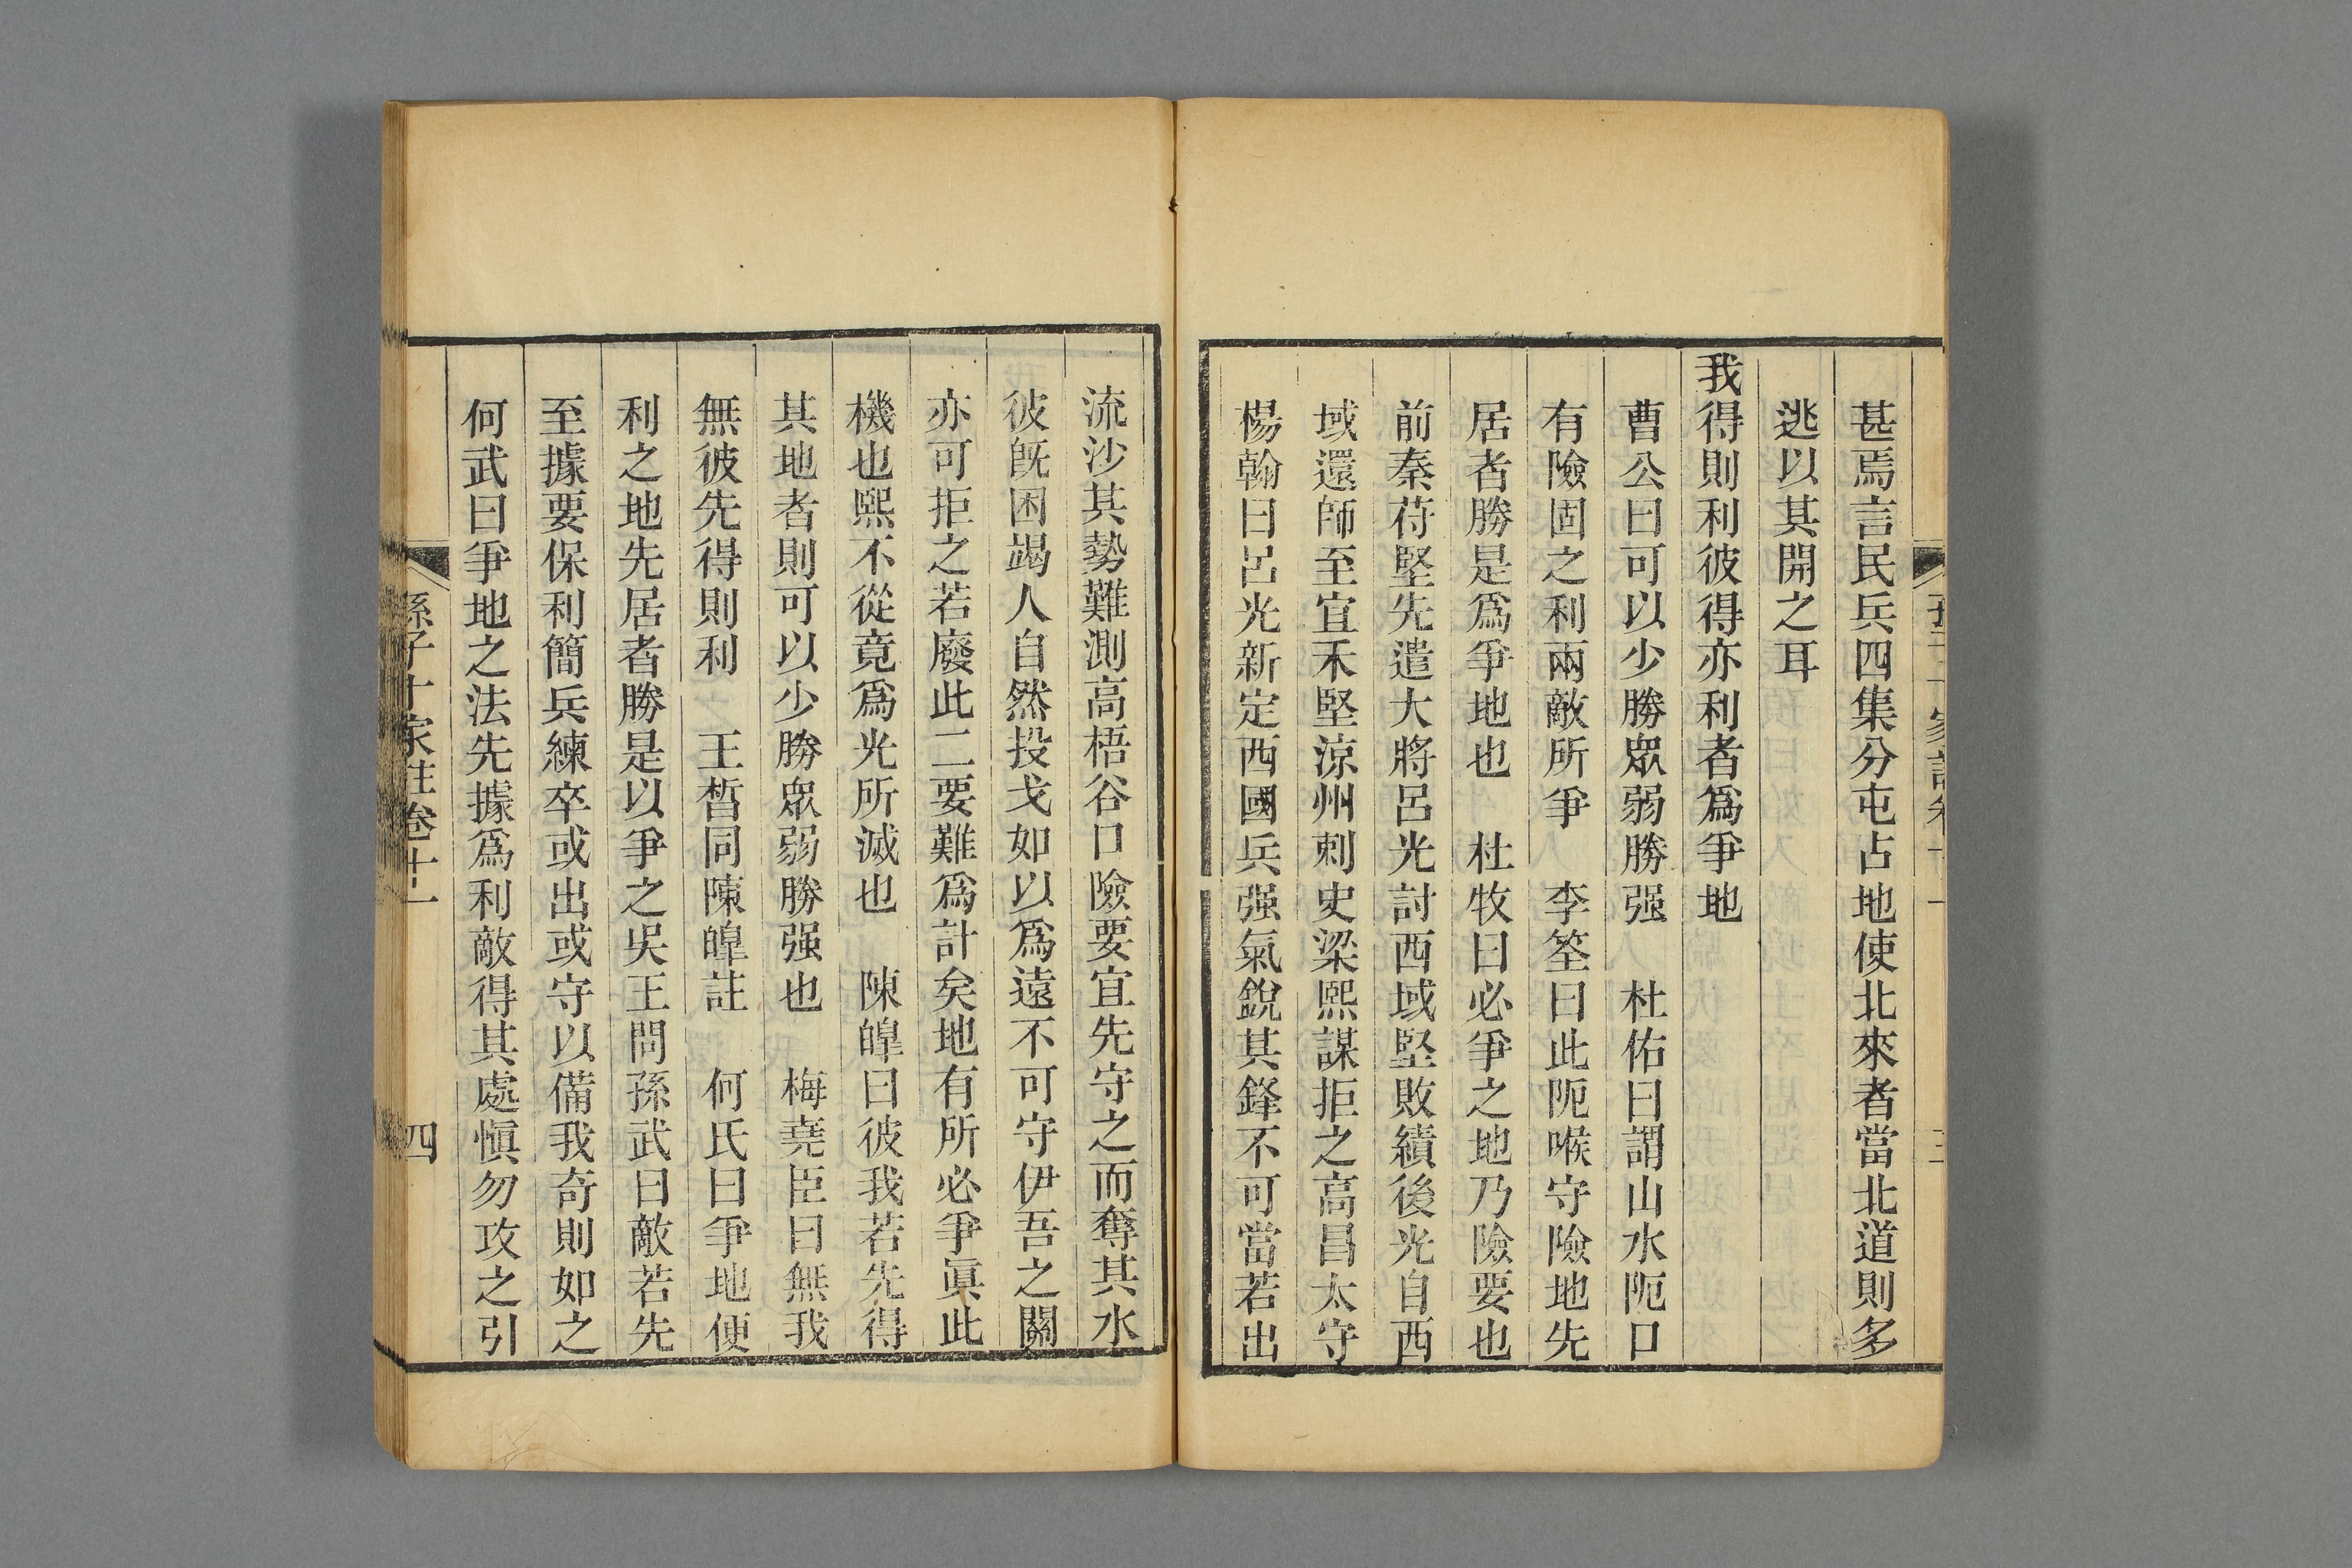 甚焉言民兵四集分屯占地使北來者當北道則多
逃以其開之耳
我得則利彼得亦利者爲爭地
曹公曰可以少勝眾弱勝强　杜佑曰謂山水阨口
有險固之利兩敵所爭　李筌曰此阨喉守險地先
居者勝是爲爭地也　杜牧曰必爭之地乃險要也
前秦苻堅先遣大將呂光討西域堅敗績後光自西
域還師至宜禾堅涼州刺史梁熙謀拒之高昌太守
楊翰曰呂光新定西國兵强氣銳其鋒不可當若出
流沙其勢難測高梧谷口險要宜先守之而奪其水
彼旣困竭人自然投戈如以爲遠不可守伊吾之關
亦可拒之若廢此二要難爲計矣地有所必爭眞此
機也熙不從竟爲光所滅也　陳皥曰彼我若先得
其地者則可以少勝眾弱勝强也　梅堯臣曰無我
無彼先得則利　王晳同陳皥註　何氏曰爭地便
利之地先居者勝是以爭之吳王問孫武曰敵若先
至據要保利簡兵練卒或出或守以備我奇則如之
何武曰爭地之法先據爲利敵得其處愼勿攻之引
孫子十家註卷十一　四